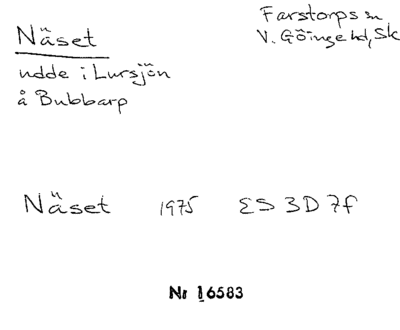 Näset
Farstorps sn
V. Göinge hd, Sk
udde i Lursjön
å Bubbarp
Näset 1975 ES 3D 7f
Nr 16583